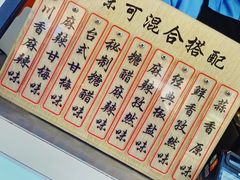 味可混合搭配
蒜香原味
鲜香孜然味
经典椒盐味
麻辣孜然味
糖醋麻辣味
秘制糖醋味
台式甘梅味
麻辣甘梅味
川香麻辣味